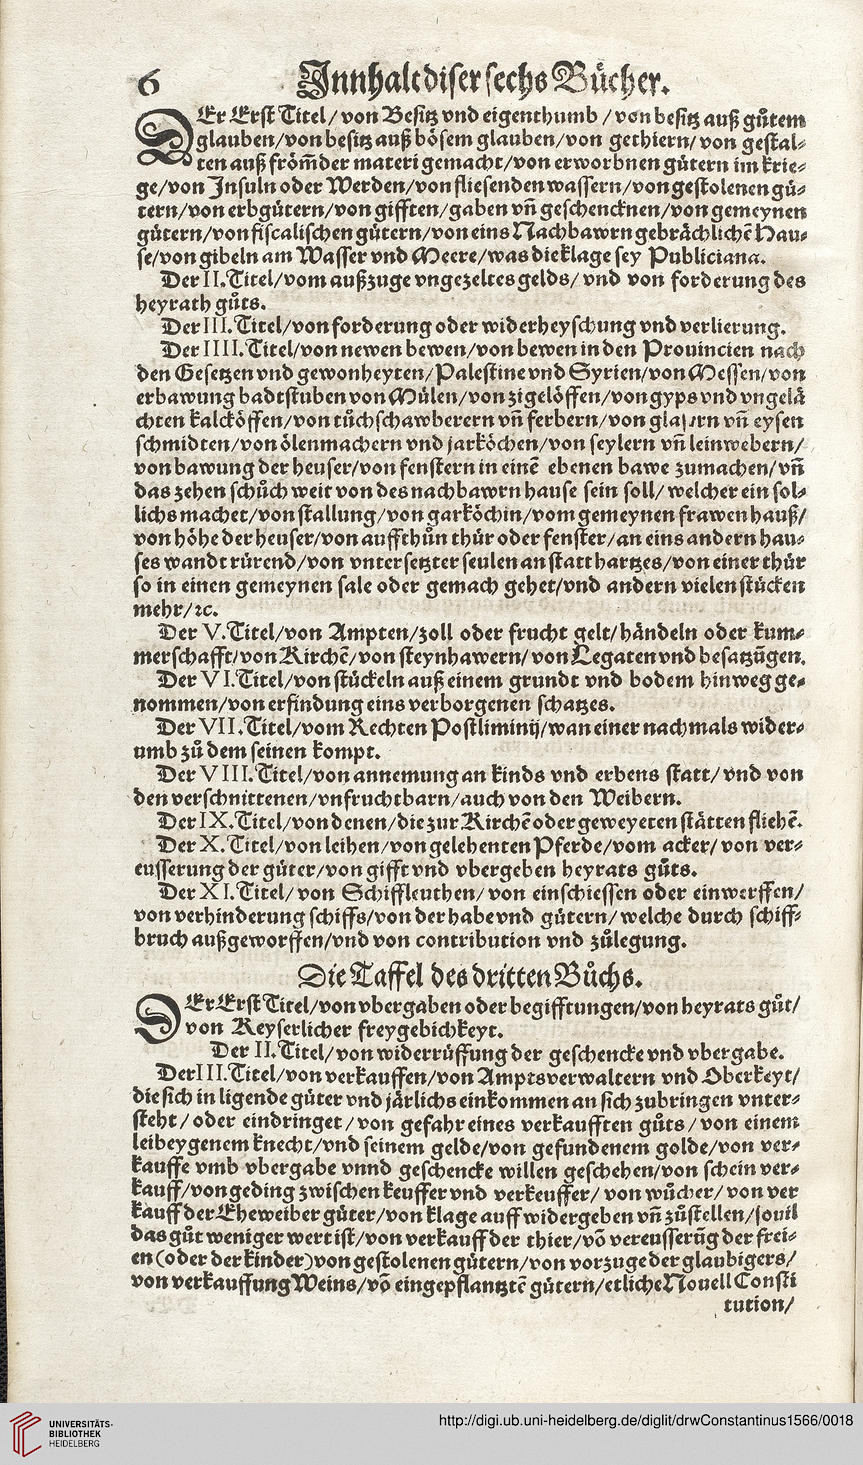 6 Innhalt diser sechs Bücher.
DEr Erst Titel/ von Besitz vnd eigenthumb / von besitz auß gůtem
glauben/von besitz auß bösem glauben/von gethiern/ von gestal⸗
ten auß frömder materi gemacht/von erworbnen gütern im krie⸗
ge/von Insuln oder Werden/von fliesenden wassern/von gestolenen gü⸗
tern/von erbgütern/von gifften/gaben vñ geschencknen/von gemeynen
gütern/von fiscalischen gütern/von eins Nachbawrn gebrächlichẽ Hau⸗
se/von gibeln am Wasser vnd Meere/was die klage sey Publiciana.
Der II. Titel/vom außzuge vngezeltes gelds/ vnd von forderung des
heyrath gůts.
Der III. Titel/von forderung oder widerheyschung vnd verlierung.
Der IIII. Titel/von newen bewen/von bewen in den Prouincien nach
den Gesetzen vnd gewonheyten/Palestine vnd Syrien/von Messen/von
erbawung badtstuben von Mülen/von zigelöffen/von gyps vnd vngelä
chten kalcköffen/von tůchschawberern vñ ferbern/von vñ eysen
schmidten/von ölenmachern vnd jarköchen/von seylern vñ leinwebern/
von bawung der heuser/von fenstern in einẽ ebenen bawe zumachen/vñ
das zehen schůch weit von des nachbawrn hause sein soll/ welcher ein sol⸗
lichs machet/von stallung/von garköchin/vom gemeynen frawen hauß/
von höhe der heuser/von auffthůn thür oder fenster/an eins andern hau⸗
ses wandt rürend/von vntersetzter seulen an statt hartzes/von einer thür
so in einen gemeynen sale oder gemach gehet/vnd andern vielen stücken
mehr/ꝛc.
Der V. Titel/von Ampten/zoll oder frucht gelt/händeln oder kum⸗
merschafft/von Kirchẽ/von steynhawern/ von Legaten vnd besatzũgen.
Der VI. Titel/von stückeln auß einem grundt vnd bodem hinweg ge⸗
nommen/von erfindung eins verborgenen schatzes.
Der VII. Titel/vom Rechten Postliminij/wan einer nachmals wider⸗
umb zů dem seinen kompt.
Der VIII. Titel/von annemung an kinds vnd erbens statt/ vnd von
den verschnittenen/vnfruchtbarn/auch von den Weibern.
Der IX. Titel/von denen/die zur Kirchẽ oder geweyeten stätten fliehẽ.
Der X. Titel/von leihen/von gelehenten Pferde/vom acker/ von ver⸗
eusserung der güter/von gifft vnd vbergeben heyrats gůts.
Der XI. Titel/ von Schiffleuthen/ von einschiessen oder einwerffen/
von verhinderung schiffs/von der habe vnd gütern/ welche durch schiff⸗
bruch außgeworffen/vnd von contribution vnd zůlegung.
Die Taffel des dritten Bůchs.
DEr Erst Titel/von vbergaben oder begifftungen/von heyrats gůt/
von Keyserlicher freygebichkeyt.
Der II. Titel/ von widerrůffung der geschencke vnd vbergabe.
Der III. Titel/von verkauffen/von Amptsverwaltern vnd Oberkeyt/
die sich in ligende güter vnd järlichs einkommen an sich zubringen vnter⸗
steht / oder eindringet / von gefahr eines verkaufften gůts / von einem
leibeygenem knecht/vnd seinem gelde/von gefundenem golde/von ver⸗
kauffe vmb vbergabe vnnd geschencke willen geschehen/von schein ver⸗
kauff/von geding zwischen keuffer vnd verkeuffer/ von wůcher/ von ver
kauff der Eheweiber güter/von klage auff widergeben vñ zůstellen/souil
das gůt weniger wert ist/von verkauff der thier/võ vereusserũg der frei⸗
en (oder der kinder)von gestolenen gütern/von vorzuge der glaubigers/
von verkauffung Weins/võ eingepflantztẽ gütern/etliche Nouell Consti
tution/
UNIVERSITÄTS-
BIBLIOTHEK
HEIDELBERG
http://digi.ub.uni-heidelberg.de/diglit/drwConstantinus1566/0018